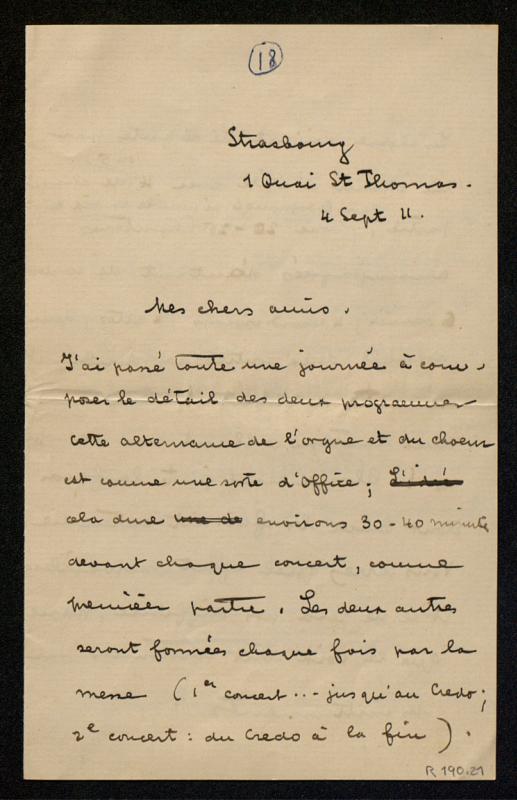 18
Strasbourg
1 Quai St Thomas.
4 Sept 11.
Mes chers amis.
J'ai passé toute une journée à com-
poser le détail des deux programmes
cette alternance de l'orgue et du choeur
est comme une sorte d'Office; L'idée
cela dure une de environs 30-40 minutes
devant chaque concert, comme
première partie. Les deux autres
seront formées chaque fois par la
messe (1er concert ... jusqu'au Credo;
2e concert: du Credo à la fin).
R 190.21